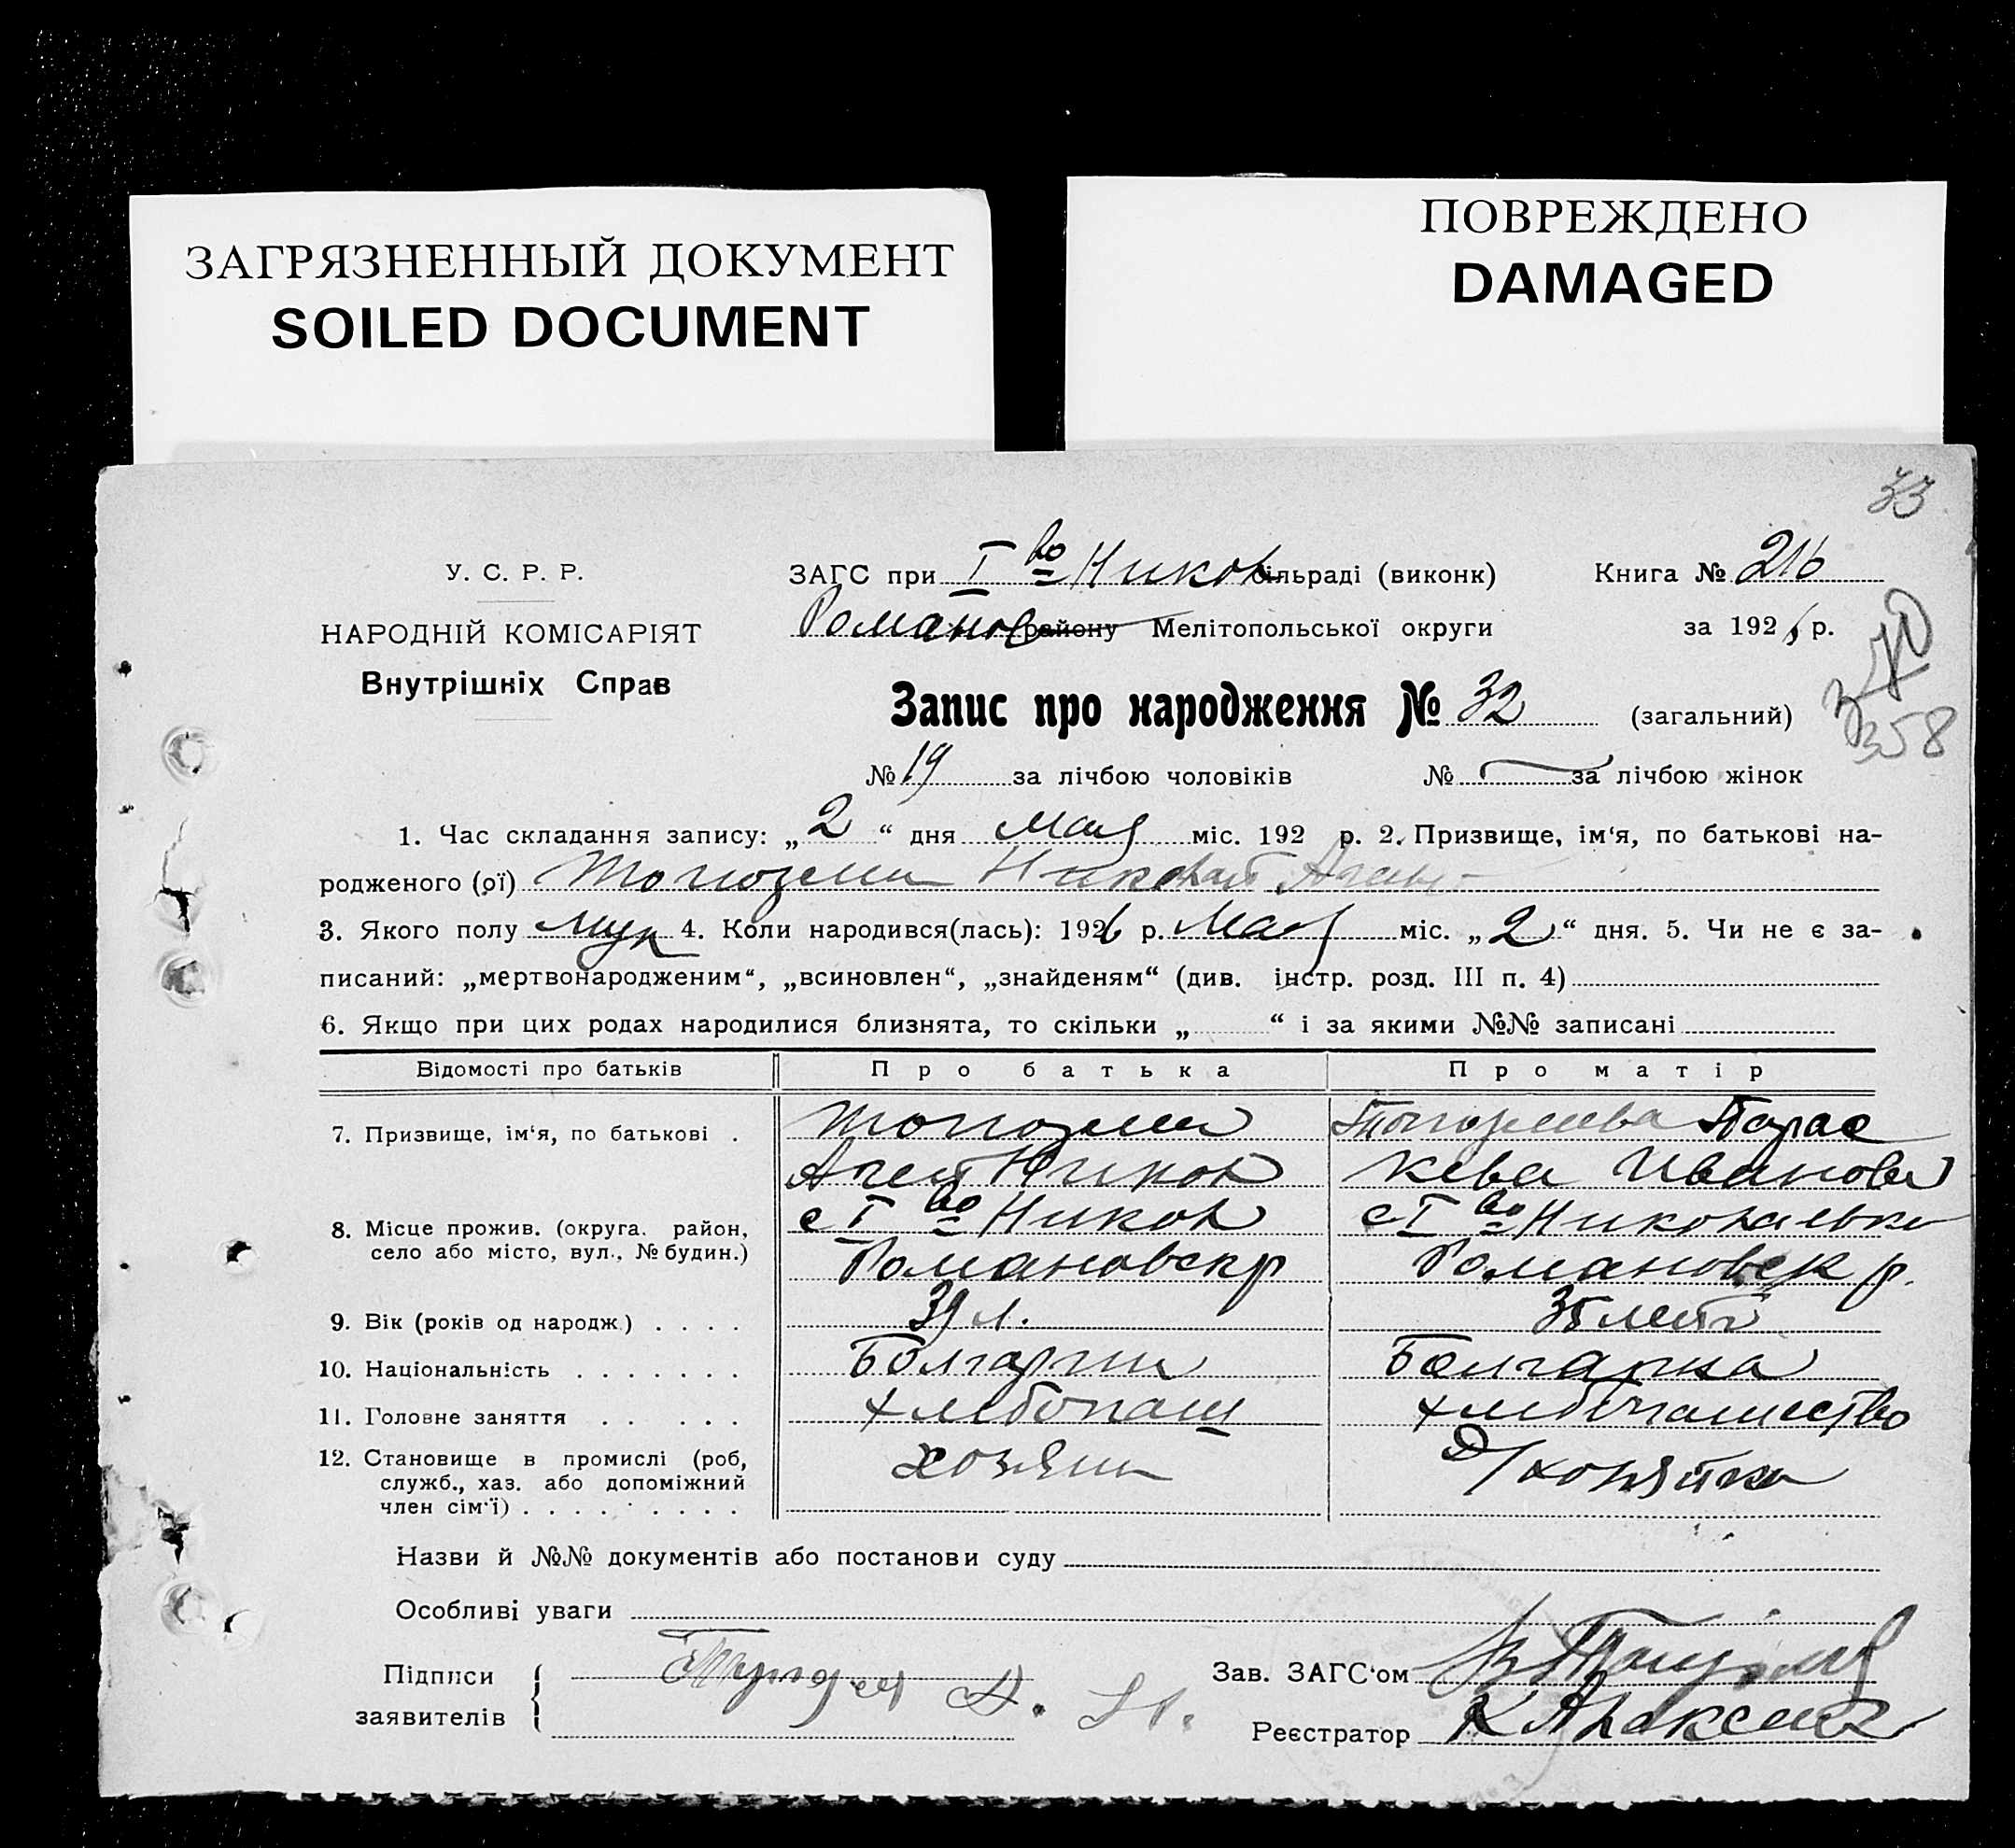 ЗАГРЯЗНЕННЫЙ ДОКУМЕНТ
SOILED DOCUMENT
ПОВРЕЖДЕНО
DAMAGED
33
У. С. Р. Р.
НАРОДНІЙ КОМІСАРІЯТ
Внутрішніх Справ
ЗАГС при I во Никол сільраді (виконк)
Романов району Мелітопольської округи
Книга № 216
за 1926 р.
Запис про народження № 32 (загальний)
358
№ 19 за лічбою чоловіків № — за лічбою жінок
1. Час складання запису: „ 2 “ дня Мая міс. 192 р. 2. Призвище, ім‘я, по батькові на-
родженого (ої) Топозлы Николай Агеев
3. Якого полу муж 4. Коли народився(лась): 1926 р. Мая міс. „ 2 “ дня. 5. Чи не є за-
писаний: „мертвонародженим“, „всиновлен“, „знайденям“ (див. інстр. розд. III п. 4)
6. Якщо при цих родах народилися близнята, то скільки „ “ і за якими №№ записані
Відомості про батьків Про батька Про матір
7. Призвище, ім‘я, по батькові . Топозлы Топозлыева Парас
Агей Никол кева Иванова
8. Місце прожив. (округа, район, село або місто, вул., № будин.) с I во Никол с I во Николаевка
Романовск р Романовск р.
9. Вік (років од народж.) . . . . 39 л. 35 лет
10. Національність . . . . . . . Болгарин Болгарка
11. Головне заняття . . . . . Хлебопаш хлебопашество
12. Становище в промислі (роб, служб., хаз. або допоміжний член сім‘ї) . . . . . . . . . хозяин д/хозяйка
Назви й №№ документів або постанови суду
Особливі уваги
Підписи
заявителів
Зав. ЗАГС‘ом
Реєстратор